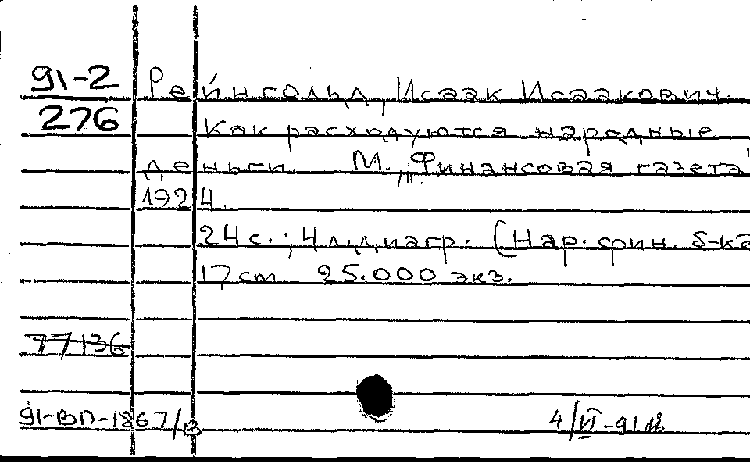 91-2
276
Рейнгольд, Исаак Исаакович.
Как расходуются народные
деньги. М., "Финансовая газета"
1924.
24 с.; 4 л. диагр. (Нар. фин. б-ка
17 cm 25.000 экз.
77136
91-ВП-1867/13
4/VI-91